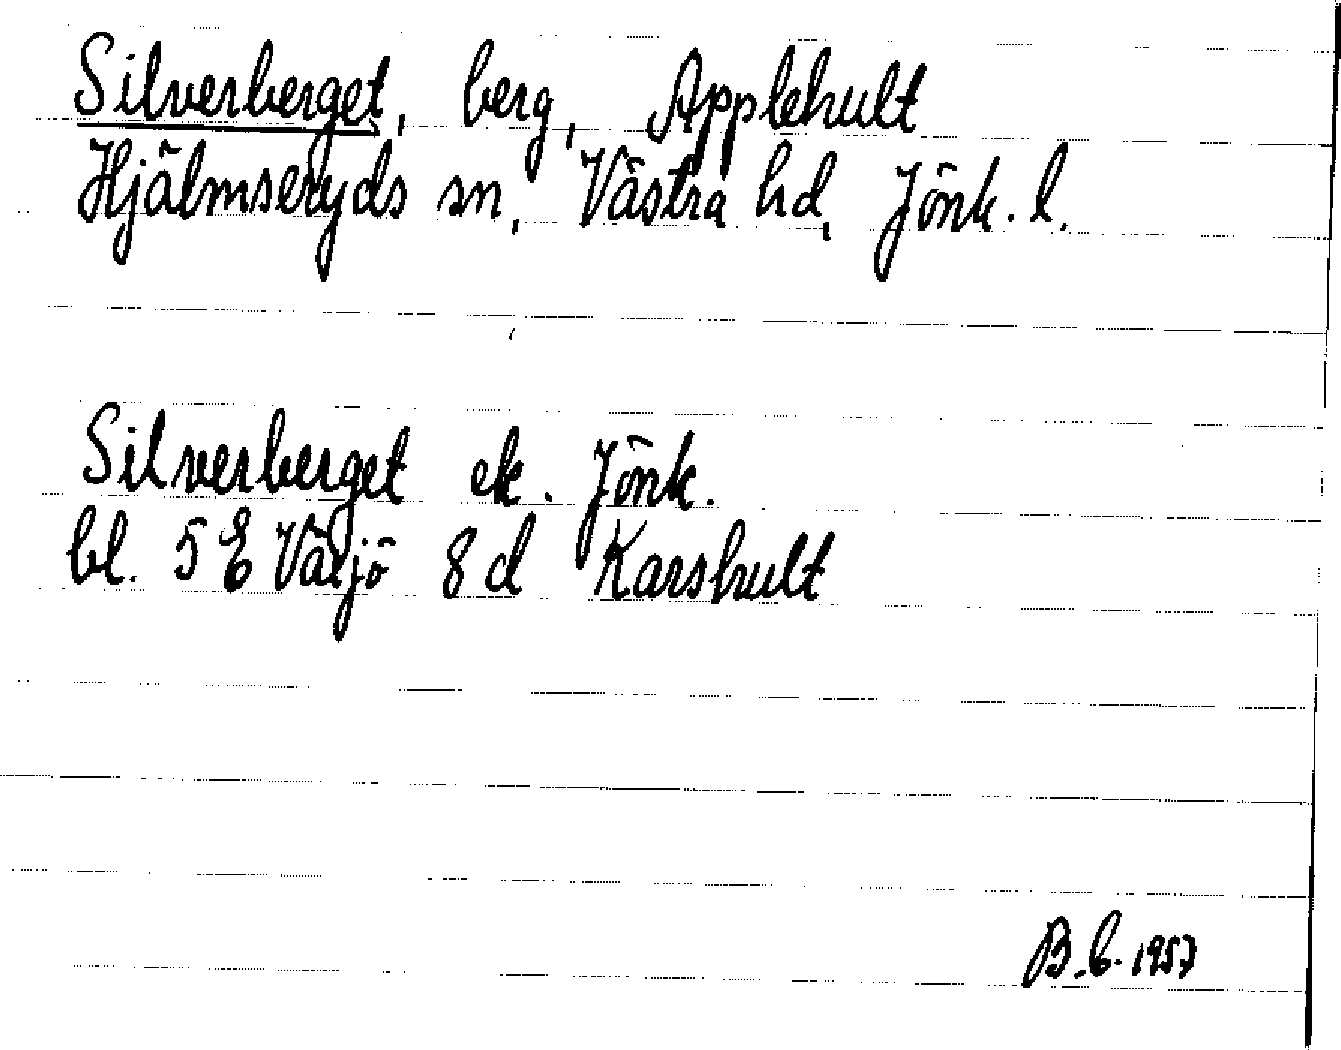 Silverberget, berg, Applehult
Hjälmseryds sn, Västra hd, Jönk. l.
Silverberget ek. Jönk.
bl. 5 E Växjö 8 d Karshult
B.b. 1957